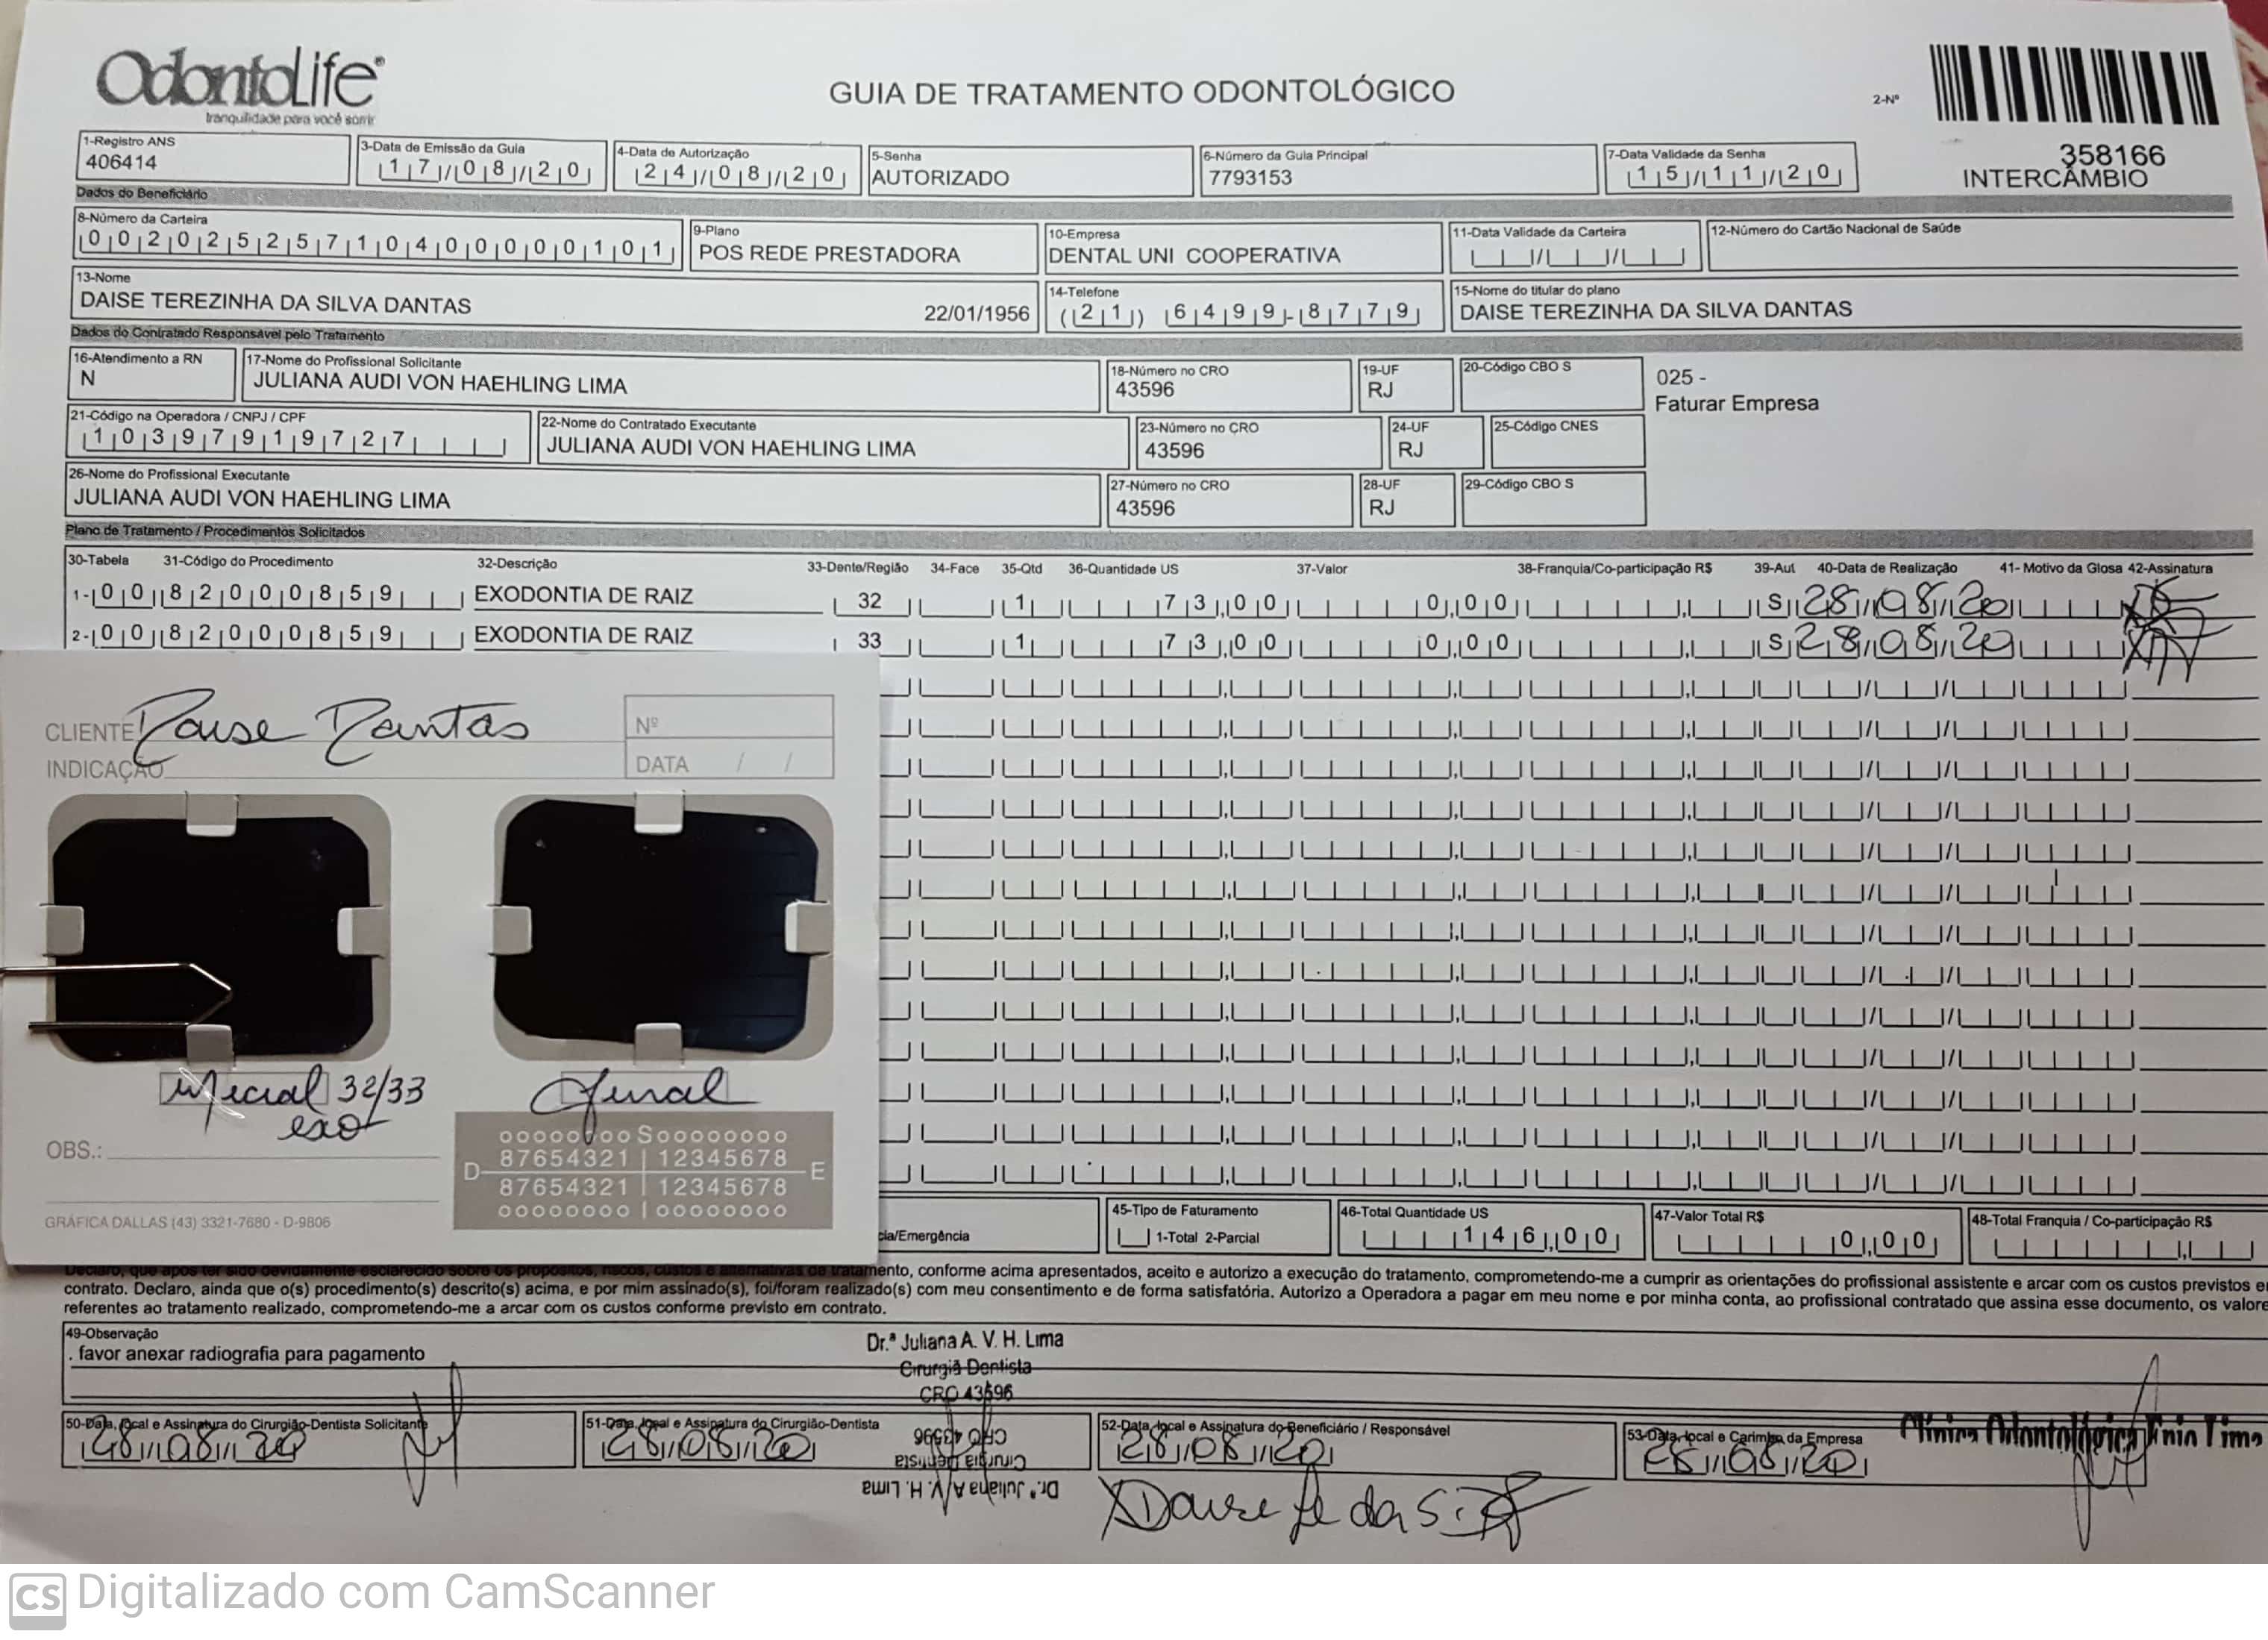 OdontoLife®
tranquilidade para você sorrir
GUIA DE TRATAMENTO ODONTOLÓGICO
2-Nº
358166
INTERCÂMBIO
1-Registro ANS
406414
3-Data de Emissão da Guia
17/08/20
4-Data de Autorização
24/08/20
5-Senha
AUTORIZADO
6-Número da Guia Principal
7793153
7-Data Validade da Senha
15/11/20
Dados do Beneficiário
8-Número da Carteira
00202525710400000101
9-Plano
POS REDE PRESTADORA
10-Empresa
DENTAL UNI COOPERATIVA
11-Data Validade da Carteira
12-Número do Cartão Nacional de Saúde
13-Nome
DAISE TEREZINHA DA SILVA DANTAS 22/01/1956
14-Telefone
(21) 6499-8779
15-Nome do titular do plano
DAISE TEREZINHA DA SILVA DANTAS
Dados do Contratado Responsável pelo Tratamento
16-Atendimento a RN
N
17-Nome do Profissional Solicitante
JULIANA AUDI VON HAEHLING LIMA
18-Número no CRO
43596
19-UF
RJ
20-Código CBO S
025 -
Faturar Empresa
21-Código na Operadora / CNPJ / CPF
10397919727
22-Nome do Contratado Executante
JULIANA AUDI VON HAEHLING LIMA
23-Número no CRO
43596
24-UF
RJ
25-Código CNES
26-Nome do Profissional Executante
JULIANA AUDI VON HAEHLING LIMA
27-Número no CRO
43596
28-UF
RJ
29-Código CBO S
Plano de Tratamento / Procedimentos Solicitados
30-Tabela 31-Código do Procedimento 32-Descrição 33-Dente/Região 34-Face 35-Qtd 36-Quantidade US 37-Valor 38-Franquia/Co-participação R$ 39-Aut 40-Data de Realização 41- Motivo da Glosa 42-Assinatura
1- 00 82000859 EXODONTIA DE RAIZ 32 1 73,00 0,00 S 28/08/20
2- 00 82000859 EXODONTIA DE RAIZ 33 1 73,00 0,00 S 28/08/20
CLIENTE Daise Dantas
INDICAÇÃO
Nº
DATA / /
inicial 32/33
exo
final
OBS.:
oooooooo S oooooooo
87654321 | 12345678
D E
87654321 | 12345678
oooooooo I oooooooo
GRÁFICA DALLAS (43) 3321-7680 - D-9806
cia/Emergência
45-Tipo de Faturamento
1-Total 2-Parcial
46-Total Quantidade US
146,00
47-Valor Total R$
0,00
48-Total Franquia / Co-participação R$
Declaro, que após ter sido devidamente esclarecido sobre os propósitos, riscos, custos e alternativas de tratamento, conforme acima apresentados, aceito e autorizo a execução do tratamento, comprometendo-me a cumprir as orientações do profissional assistente e arcar com os custos previstos e
contrato. Declaro, ainda que o(s) procedimento(s) descrito(s) acima, e por mim assinado(s), foi/foram realizado(s) com meu consentimento e de forma satisfatória. Autorizo a Operadora a pagar em meu nome e por minha conta, ao profissional contratado que assina esse documento, os valore
referentes ao tratamento realizado, comprometendo-me a arcar com os custos conforme previsto em contrato.
49-Observação
. favor anexar radiografia para pagamento
Dr.ª Juliana A. V. H. Lima
Cirurgiã Dentista
CRO 43596
50-Data, local e Assinatura do Cirurgião-Dentista Solicitante
28/08/20
51-Data, local e Assinatura do Cirurgião-Dentista
28/08/20
CRO 43596
Cirurgiã Dentista
Dr.ª Juliana A. V. H. Lima
52-Data, local e Assinatura do Beneficiário / Responsável
28/08/20
53-Data, local e Carimbo da Empresa
28/08/20
Digitalizado com CamScanner
CS